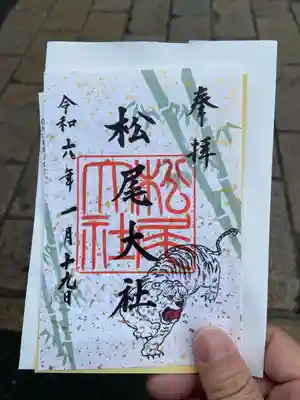 奉拝
松尾大社
松尾大社
令和六年 一月十九日